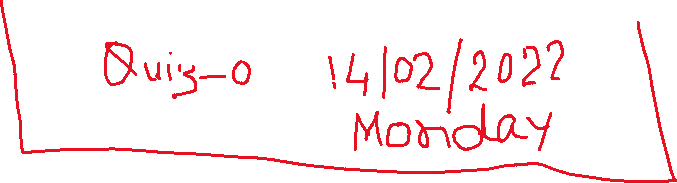 Quiz-0 14/02/2022
Monday